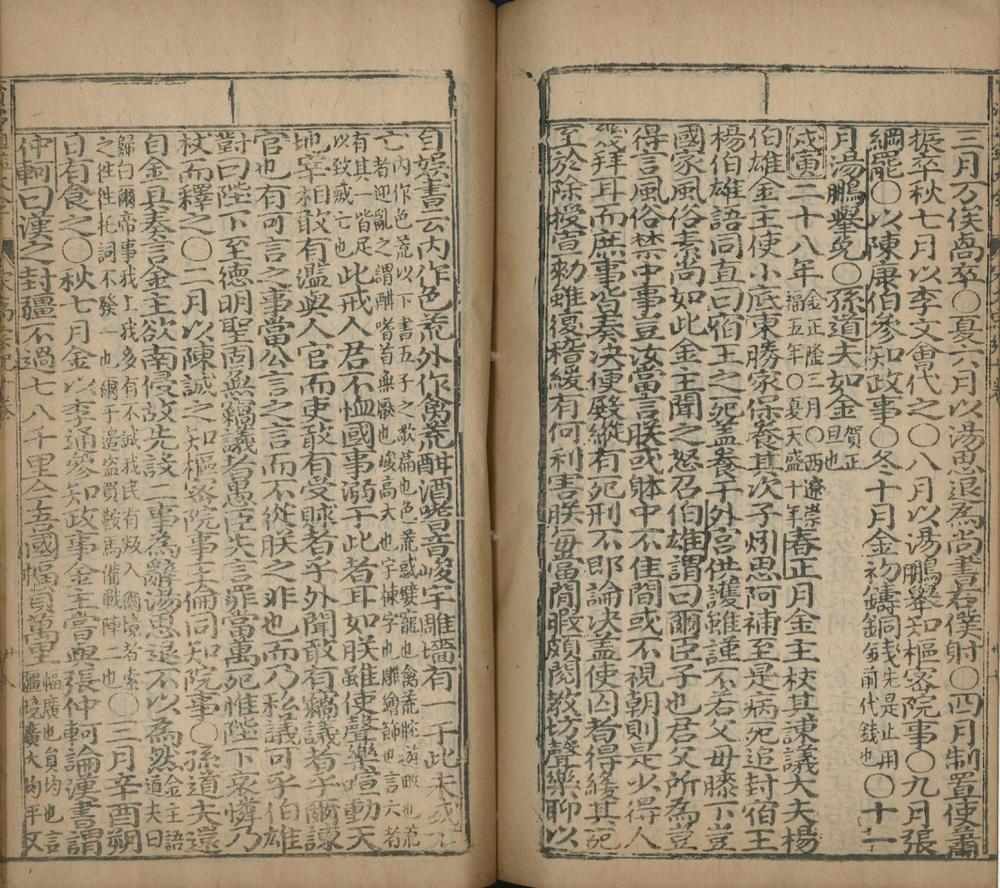 三月万俟卨卒○夏六月以湯思退為尚書右僕射○四月制置使蕭
振卒秋七月以李文會代之○八月以湯鵬舉知樞密院事○九月張
綱罷○以陳康伯參知政事○冬十月金初鑄銅錢先是止用前代錢也○十一
月湯鵬舉免○孫道夫如金賀正旦也
戊寅二十八年金正隆三月○西遼崇福五年○夏天盛十年春正月金主杖其諫議大夫楊
伯雄金王使小底東勝家保養其次子矧思阿補至是病死追封宿王
楊伯雄語同直曰宿王之死盖養于外宮供護雖謹不若父毋膝下豈
國家風俗素尚如此金主聞之怒召伯雄謂曰爾臣子也君父所為豈
得言風俗禁中事豈汝當言朕或躰中不佳間或不視朝則是少得人
幾拜耳而庶事皆奏决便殿縱有死刑不即論决盖使囚者得緩其死
至於除授宣勑雖復稽緩有何利害朕每當閒暇頗閱教坊聲樂聊以
自娱書云内作色荒外作禽荒酣酒嗜音峻宇雕墻有一于此未或不
亡内作色荒以下書五子之歌篇也色荒惑嬖寵也禽荒耽遊畋也荒者迷亂之謂酣嗜者皆無厭也峻高大也宇棟宇也雕繪飾也言六者
有其一皆足以致滅亡也此戒人君不恤國事溺于此者耳如朕雖使聲樂喧動天
地宰相敢有濫與人官而吏敢有受賕者乎外聞敢有竊議者乎爾諫
官也有可言之事當公言之言而不從朕之非也而乃私議可乎伯雄
對曰陛下至德明聖固無竊議者愚臣失言罪當萬死惟陛下哀憐乃
杖而釋之○二月以陳誠之知樞密院事王倫同知院事○孫道夫還
自金具奏言金主欲南侵故先設二事為辭湯思退不以為然金主語道夫曰
歸白爾帝事我上我多有不誠我民有叛入爾境者索之徃徃托詞不發一也爾于邊盗買鞍馬備戰陣二也○三月辛酉朔
日有食之○秋七月金以李通參知政事金主嘗與張仲軻論漢書謂
仲軻曰漢之封疆不過七八千里今吾國幅員萬里幅廣也員均也言疆境廣大均平又